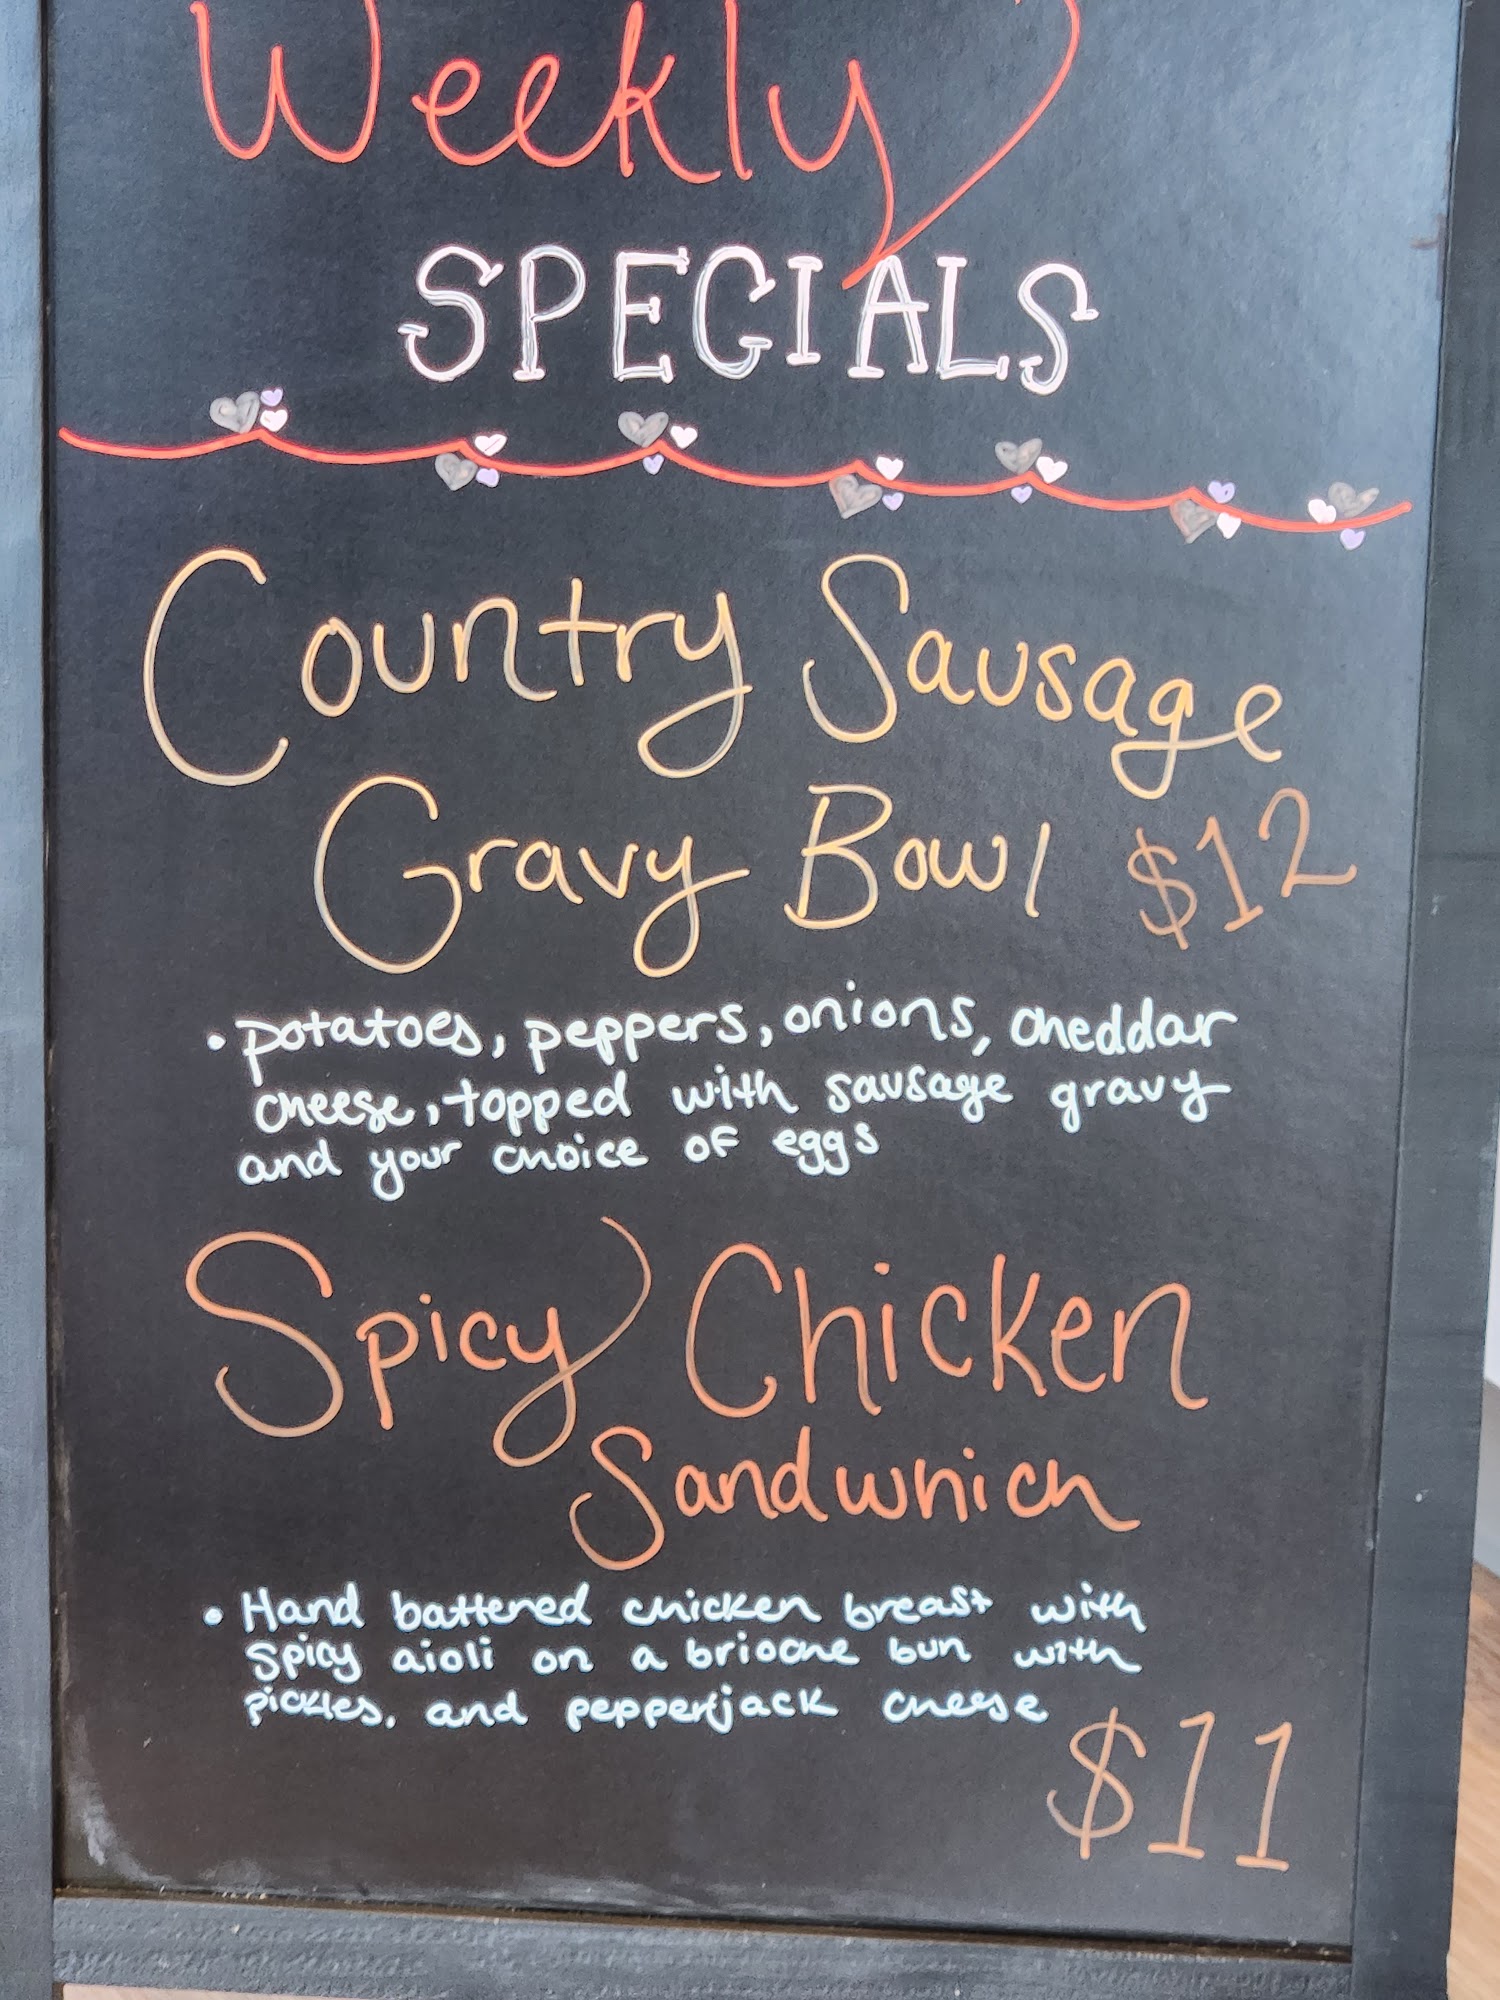 Weekly
SPECIALS
Country Sausage
Gravy Bowl $12
• potatoes, peppers, onions, cheddar
cheese, topped with sausage gravy
and your choice of eggs
Spicy Chicken
Sandwhich
• Hand battered chicken breast with
spicy aioli on a brioche bun with
pickles, and pepperjack cheese
$11